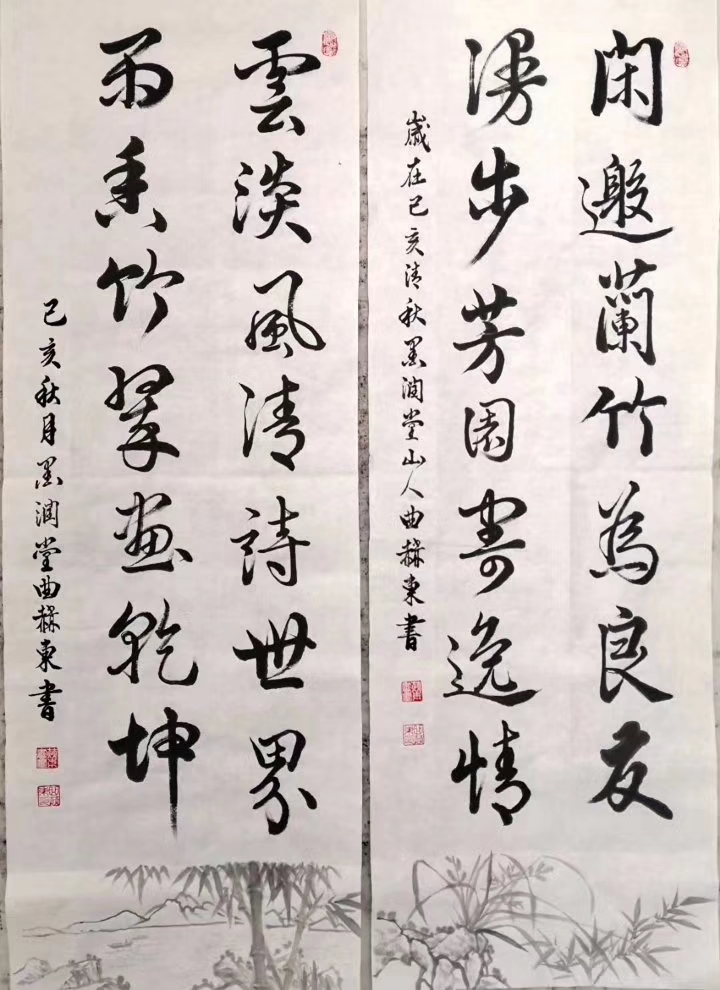 閑邀蘭竹為良友
漫步芳園寄逸情
歲在己亥清秋墨潤堂山人曲赫東書
雲淡風清詩世界
雨香竹翠畫乾坤
己亥秋月墨潤堂曲赫東書